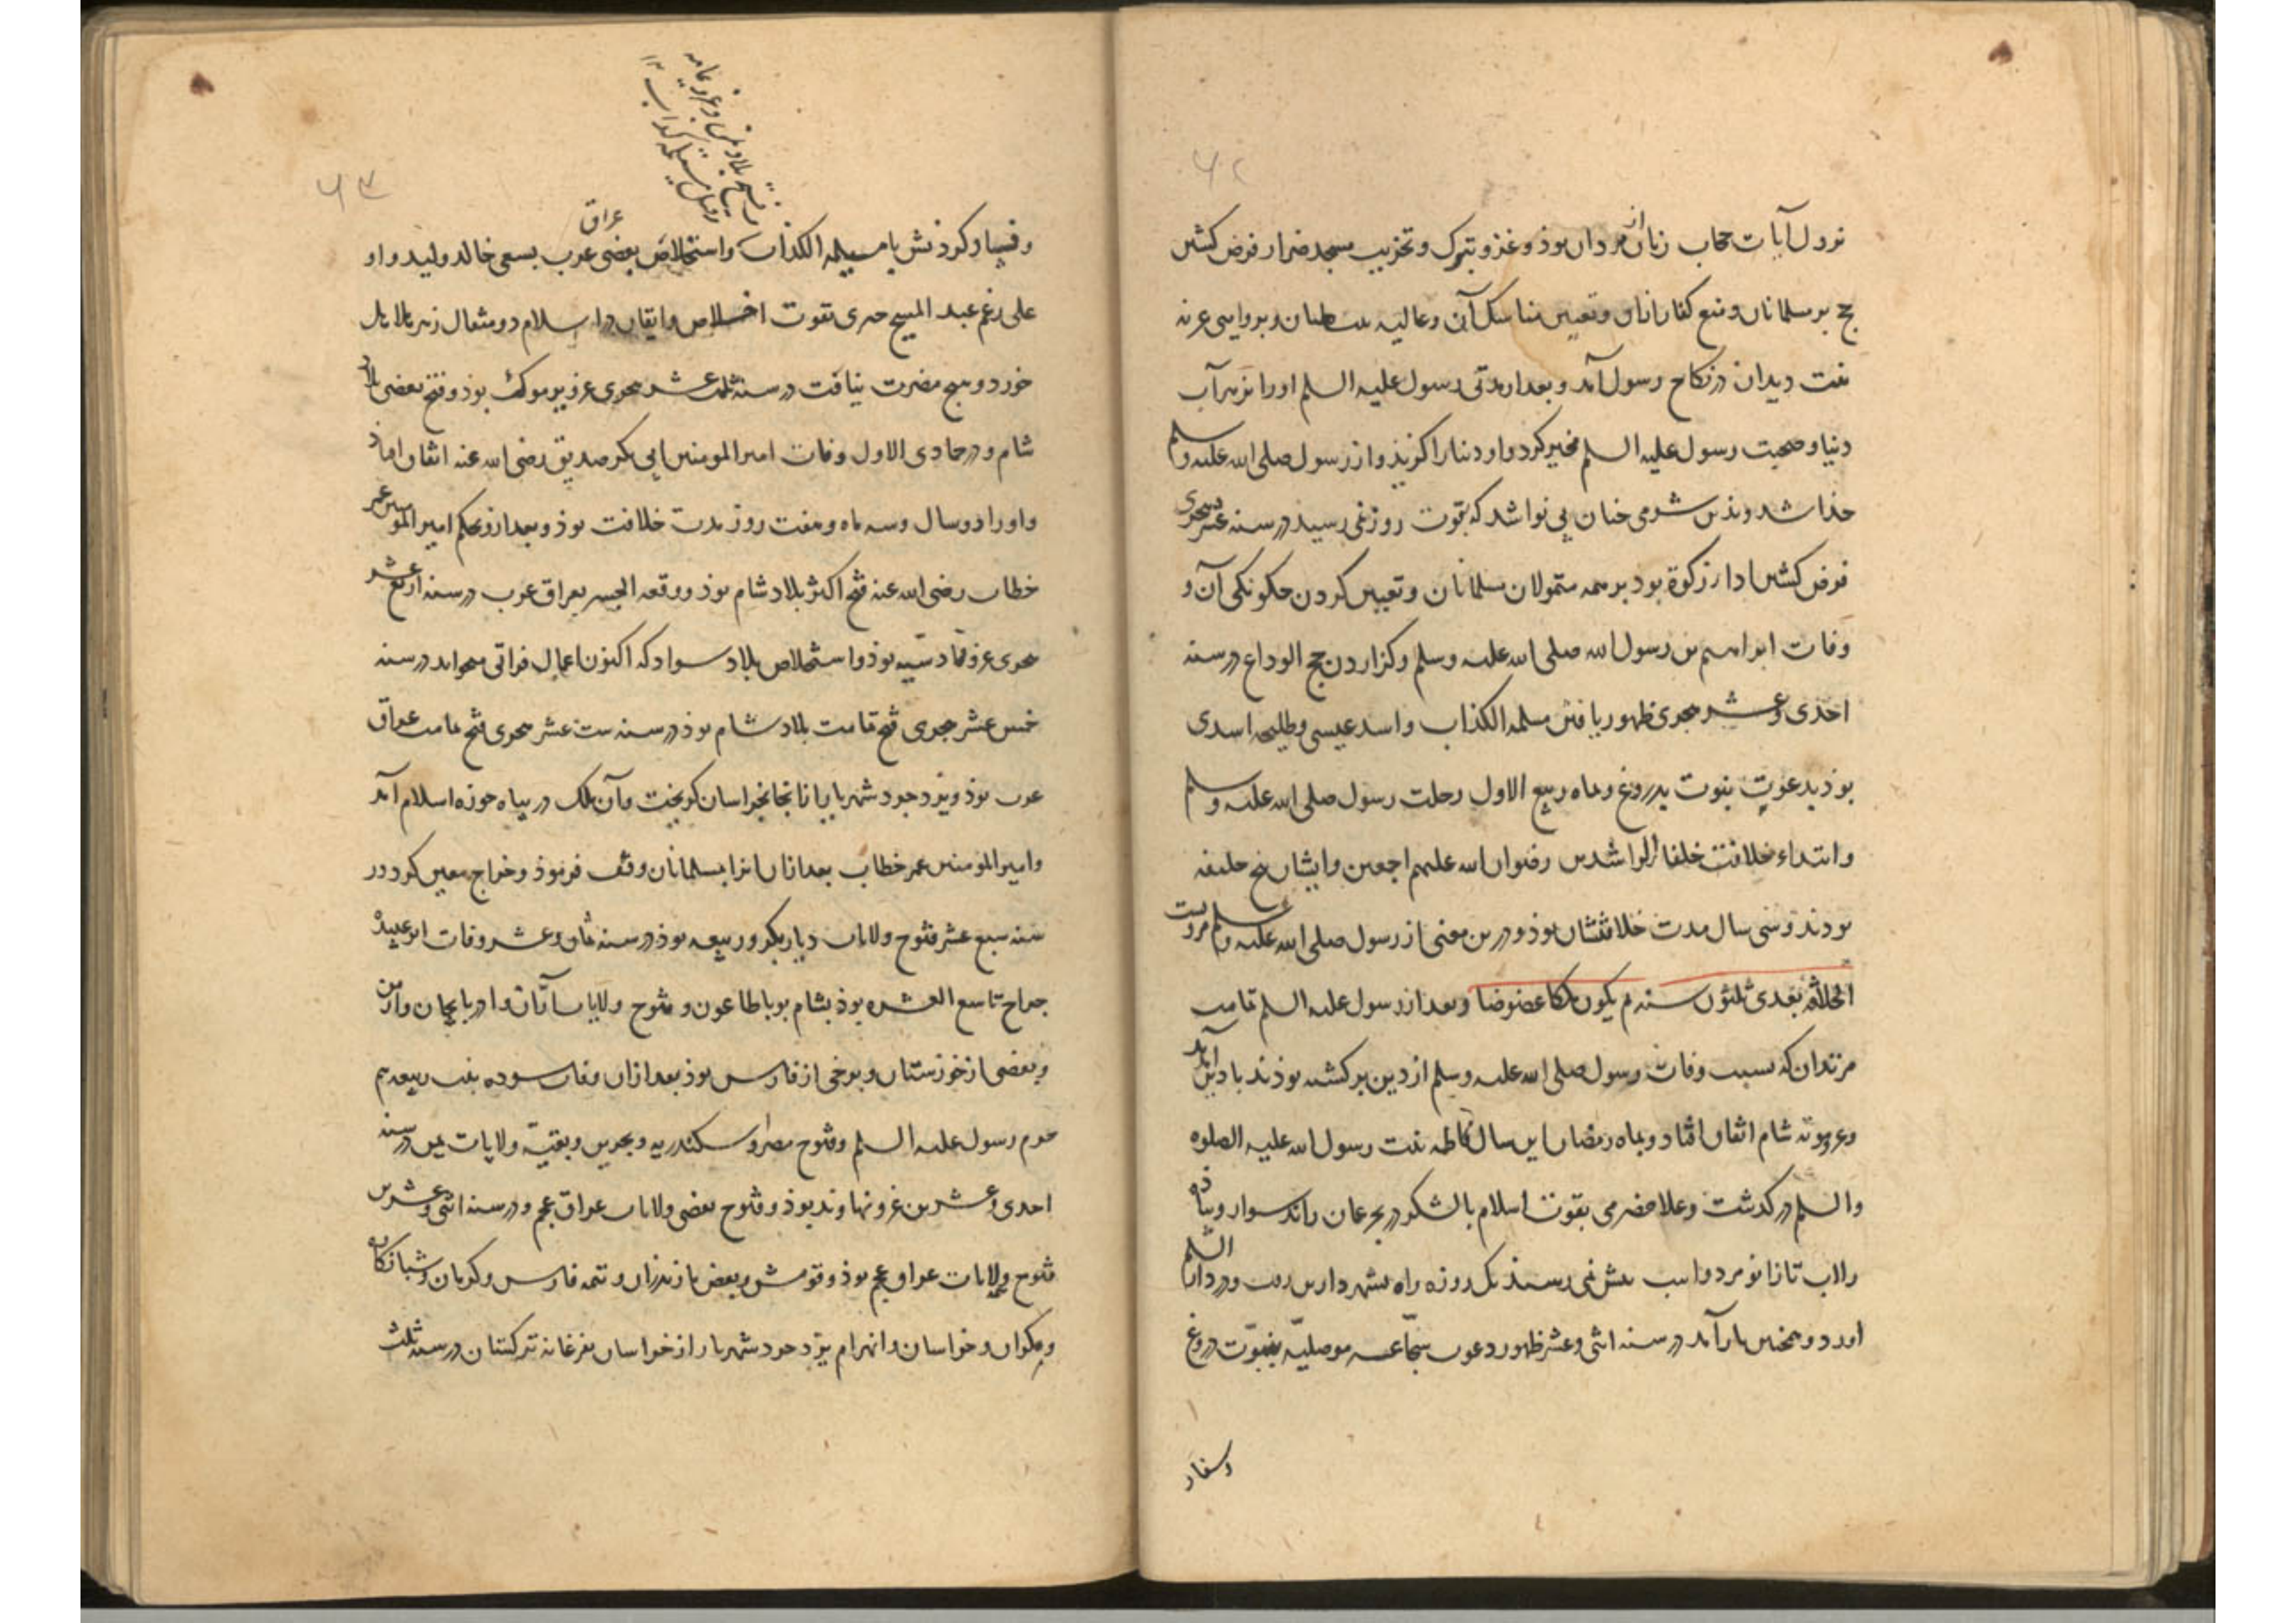 ۶۲
نزول آیات حجاب زنان از مردان بوذ و غزو تبوک و تخریب مسجد ضرار فرض کشتن
حج بر مسلمانان و منع کفار ازان و تعیین مناسک آن و عالیه بنت ظبیان و بروایتی عزنه
بنت دیدان در نکاح رسول آمد و بعد از مدتی رسول علیه السلم او را
دنیا و صحبت رسول علیه السلم مخیر کرد و او دنیا را گزیذ و از رسول صلی الله علیه و سلم
جذا شد و بذین شومی چنان بی نوا شد که بقوت روز نمی رسید در سنه عشر هجری
فرض کشتن ادا از زکوة بود بر همه متمولان مسلمانان و تعیین کردن چگونگی آن و
وفات ابراهیم بن رسول الله صلی الله علیه وسلم و گزاردن حج الوداع در سنه
احدی و عشر هجری ظهور یافتن مسلمه الکذاب و اسد عیسی و طلیحه اسدی
بوذ بدعوت بنوت بدروغ و ماه ربیع الاول رحلت رسول صلی الله علیه و سلم
و ابتداء خلافت خلفاء الراشدین رضوان الله علیهم اجمعین و ایشان پنج خلیفه
بودند و سی سال مدت خلافتشان بوذ و درین معنی از رسول صلی الله علیه و سلم مرویست
الخلافة بعدی ثلثون سنه ثم یکون ملکا عضوضا و بعد از رسول علیه السلم تمامت
مرتدان که بسبب وفات رسول صلی الله علیه وسلم از دین برگشته بوذند با دین آمد
و غزو موته شام اتفاق افتاد و بماه رمضان این سال فاطمه بنت رسول الله علیه الصلوه
والسلم در گذشت و علا حضرمی بقوت اسلام با لشکر در بحر عمان راند سوار و پیاذه
را آب تا زانو مرد و اسب بیش نمی رسیذ یک روزه راه بشهر دارین رفت و در دار السلم
اورد و همچنین باز آمد در سنه اثنی و عشر ظهور دعوت سجاعه موصلیه بنبوت دروغ
وسفاد
۶۳
و فساد کردنش با مسیلمه الکذاب و استخلاص بعضی عراق عرب بسعی خالد ولید و او
علی رغم عبد المسیح حیری بقوت اخلاص و ایقان در اسلام دو مثقال زهر هلاهل
خورد و هیچ مضرت نیافت در سنه ثلث عشر هجری غزو یرموک بوذ و فتح بعضی بلاد
شام و در جمادی الاول وفات امیر المومنین ابی بکر صدیق رضی الله عنه اتفاق افتاذ
و او را دو سال و سه ماه و هفت روز مدت خلافت بوذ و بعد ازو بحکم امیر المومنین عمر
خطاب رضی الله عنه فتح اکثر بلاد شام بوذ و وقعه الجسر بعراق عرب در سنه اربع عشر
هجری غزو قادسیه بوذ و استخلاص بلاد سواد که اکنون اعمال فراتی میخوانند در سنه
خمس عشر هجری فتح تمامت بلاد شام بوذ در سنه ست عشر هجری فتح تمامت عراق
عرب بوذ و یزدجرد شهریار از انجا بخراسان گریخت و آن ملک در پناه حوزه اسلام آمد
و امیر المومنین عمر خطاب بعد ازان انرا بمسلمانان وقف فرموذ و خراج معین کرد در
سنه سبع عشر فتوح ولایات دیار بکر و ربیعه بوذ در سنه ثمان و عشر وفات ابو عبیده
جراح تاسع العشره بوذ بشام بوبا طاعون و فتوح ولایات اران و اذربایجان و ارمن
و بعضی از خوزستان و برخی از فارس بوذ بعد ازان وفات سوده بنت ربیعه هم
حرم رسول علیه السلم و فتوح مصر و سکندریه و بحرین و بقیه ولایات یمن در سنه
احدی و عشرین غزو نهاوند بوذ و فتوح بعضی ولایات عراق عجم و در سنه اثنی و عشرین
فتوح تتمه ولایات عراق عجم بوذ و قومش و بعض مازندران و تتمه فارس و کرمان و شبانکاره
و مکران و خراسان و انهزام یزدجرد شهریار از خراسان بفرغانه ترکستان در سنه ثلث